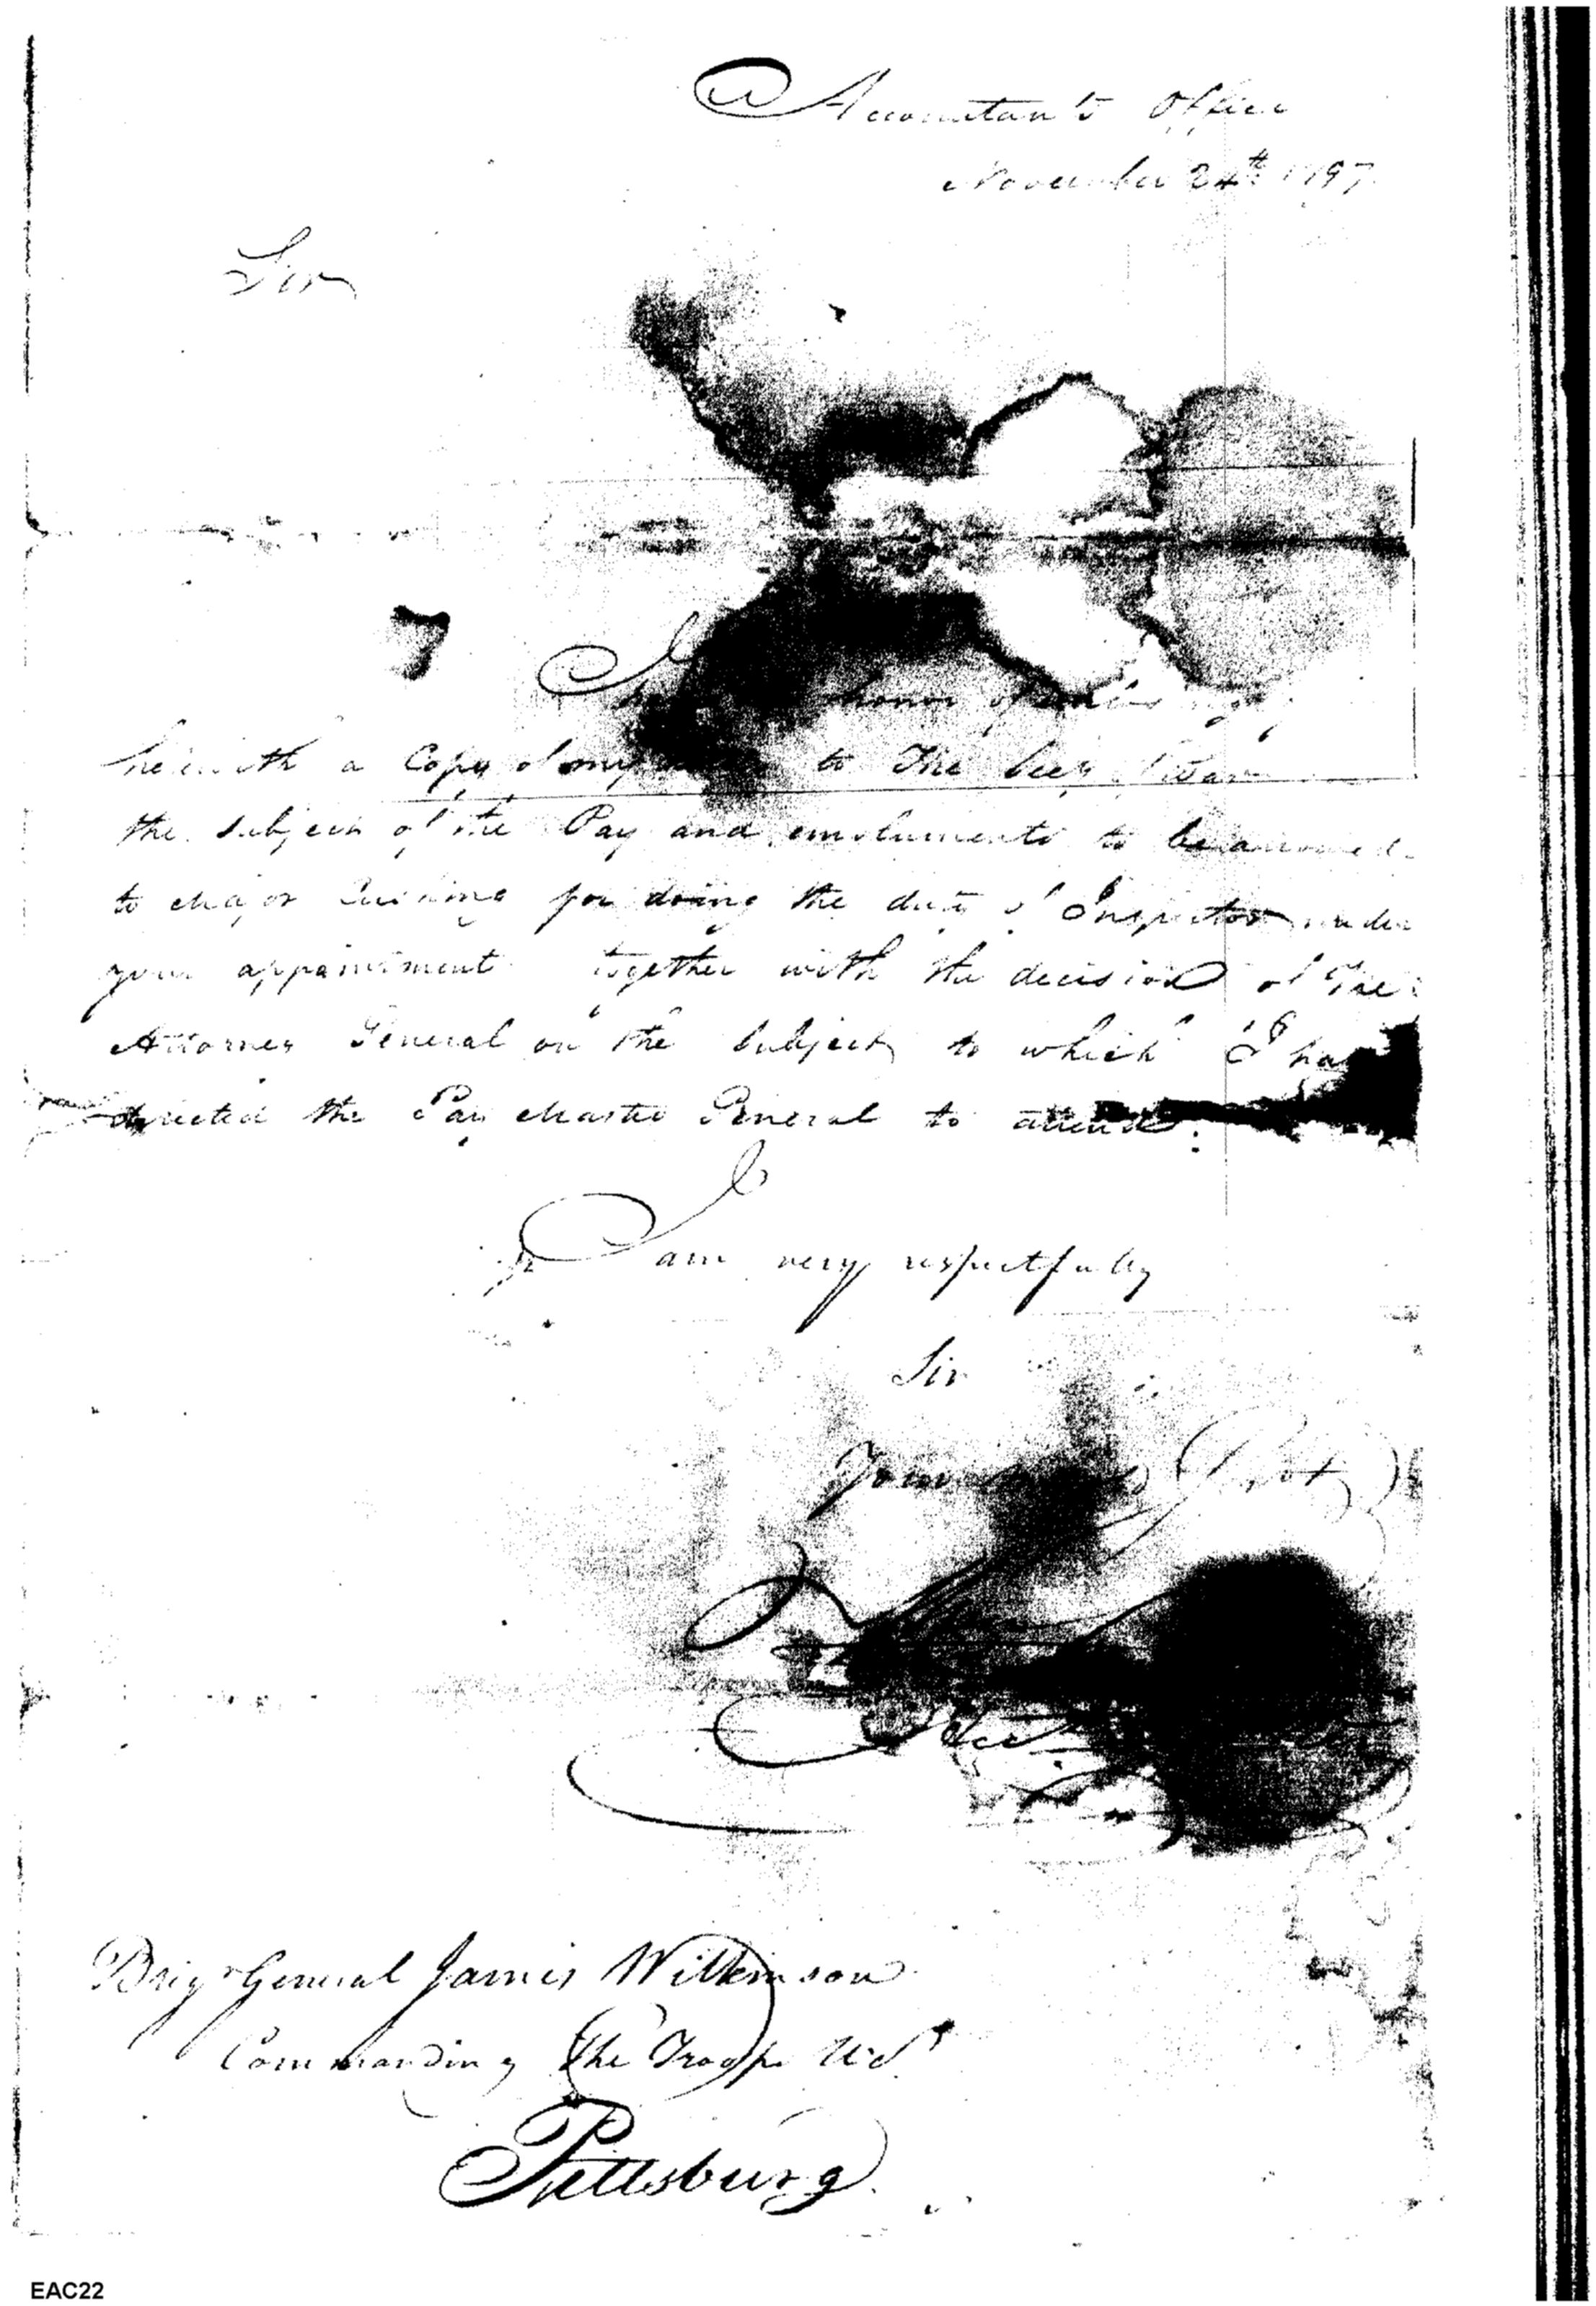 Accountants Office
November 24th 1797
Sir
I honor of
herewith a Copy of my to The Secy of War
the subject of the Pay and emoluments to be allowed
to Major Cushing for doing the duty of Inspector under
your appointment together with the decision of the
Attorney General on the subject to which I have
directed the Pay Master General to attend.
I am very respectfully
Sir
Your Obt
Brigr General James Wilkinson
Commanding the Troops U.S.
Pittsburg
EAC22